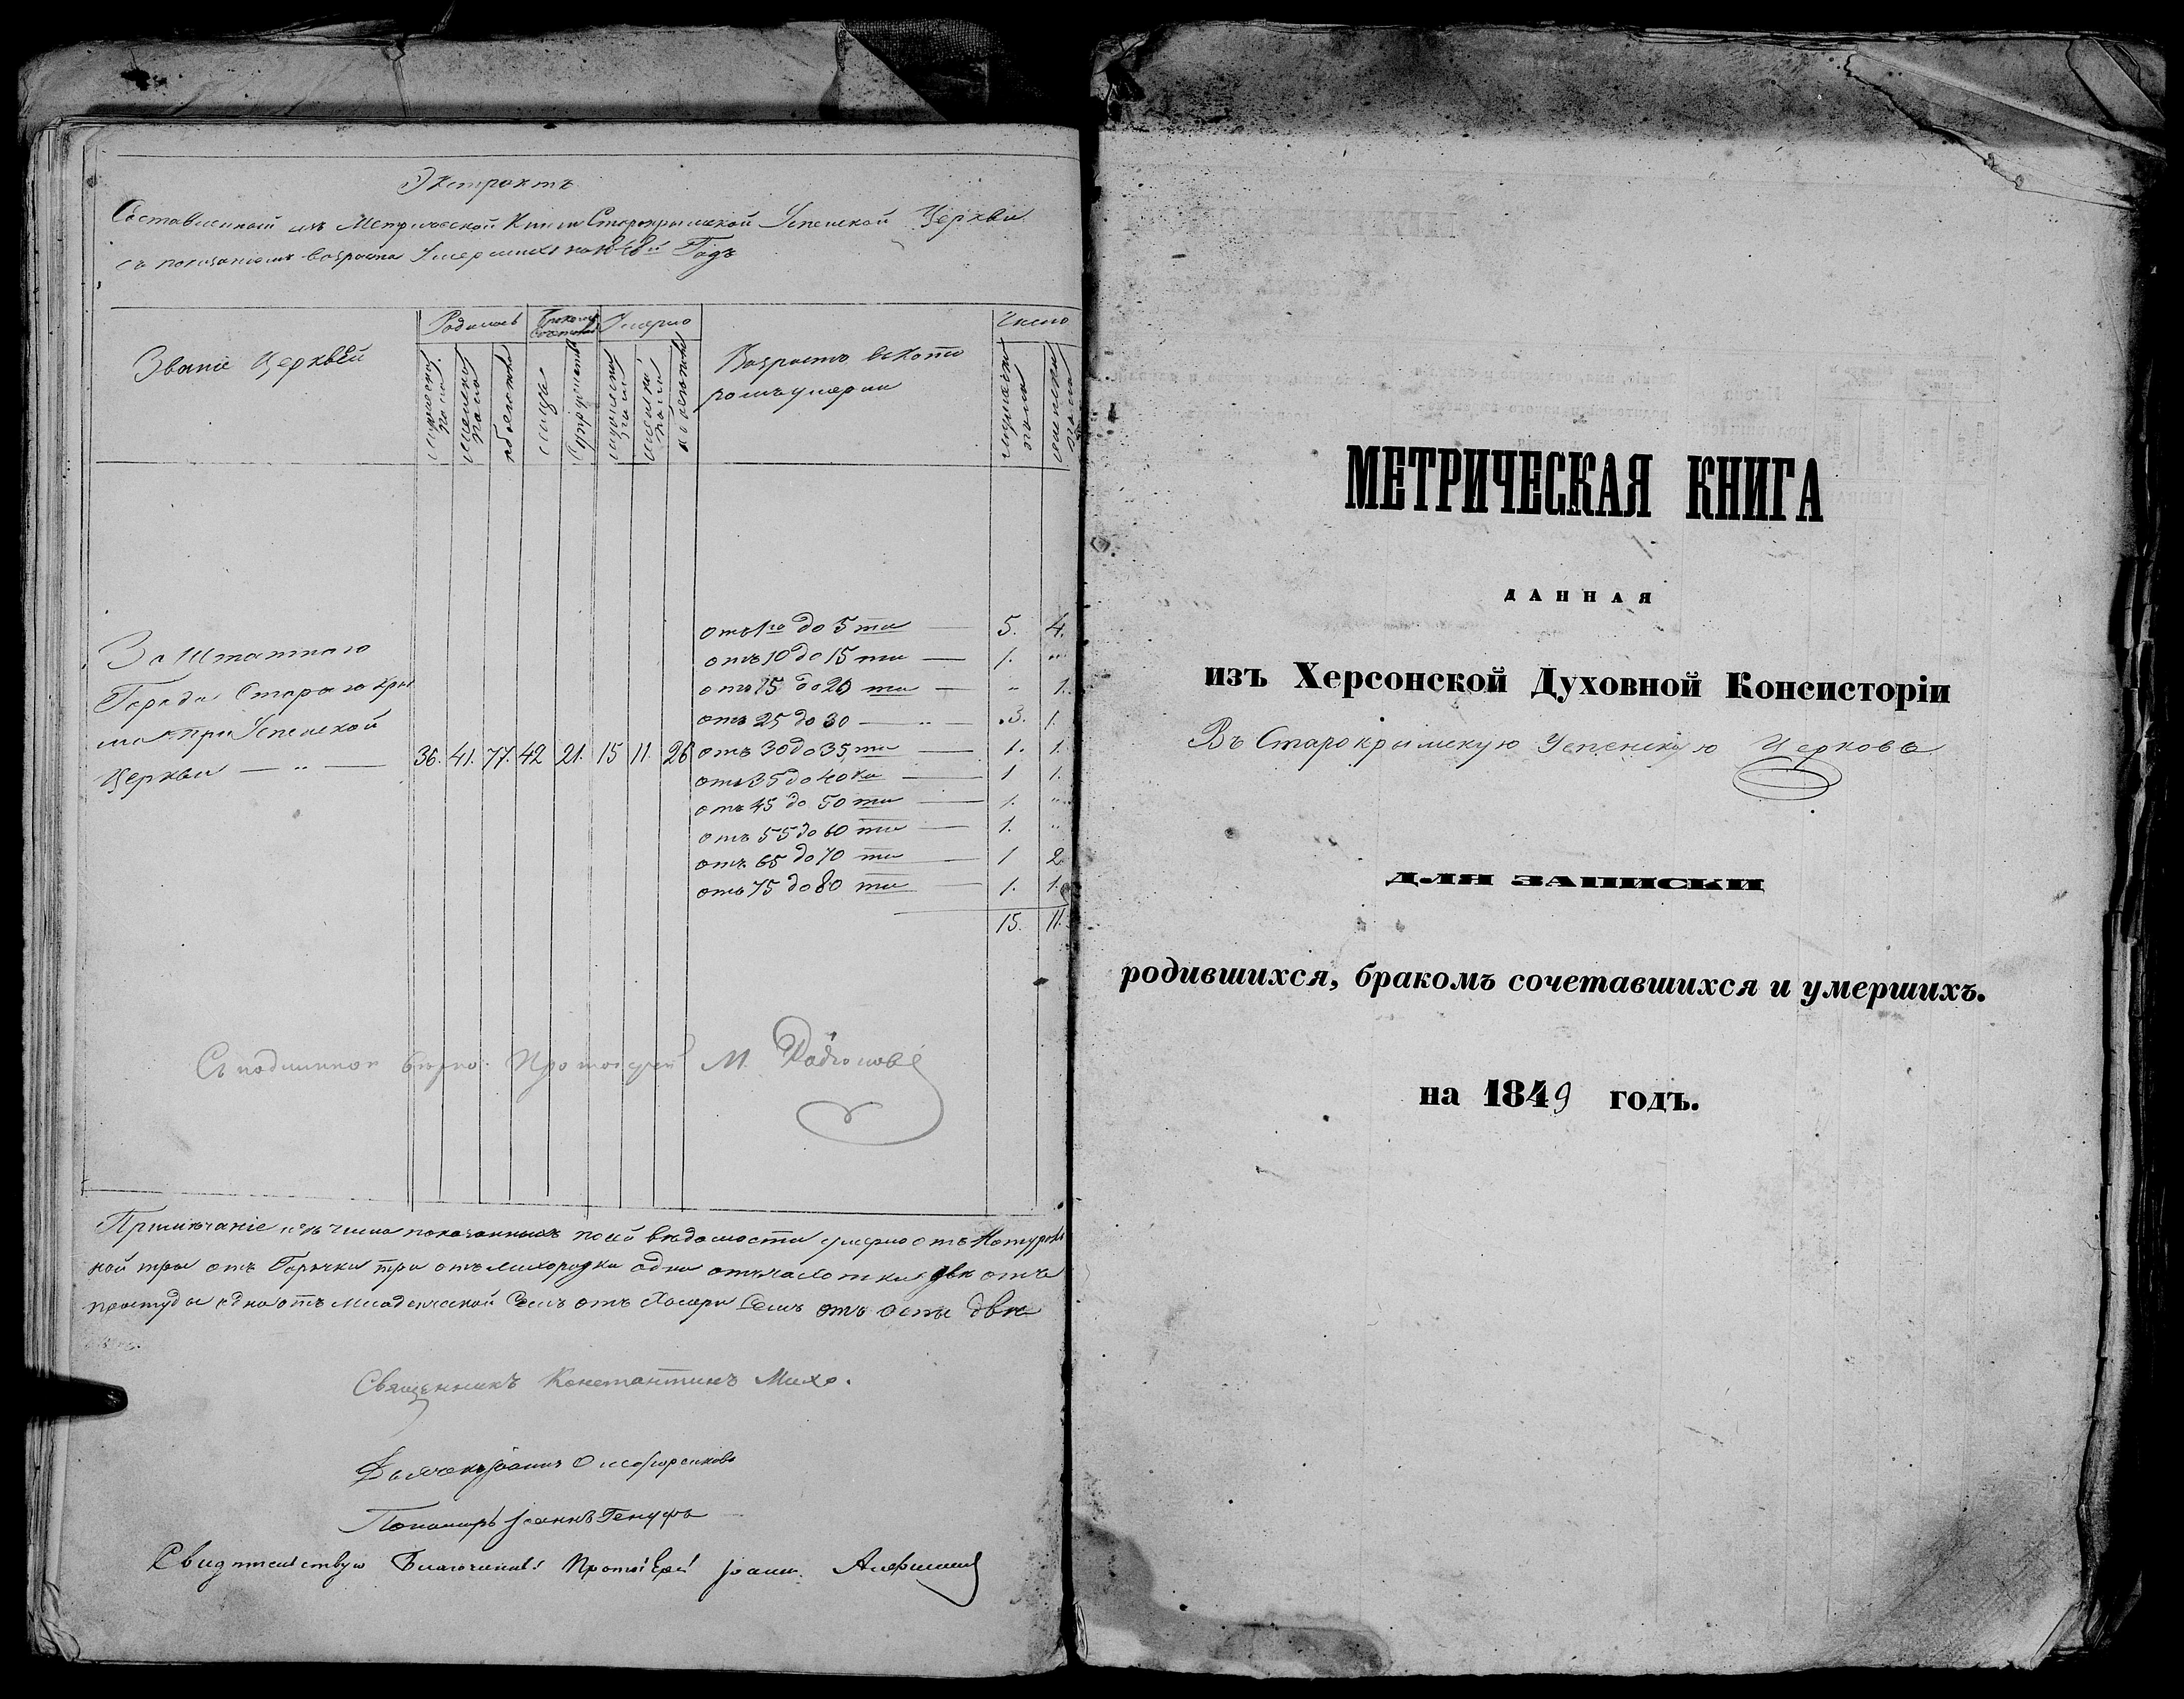 Экстрактъ
Составленный изъ Метрической Книги Старокрымской Успенской Церкви
съ показаніемъ возраста Умершихъ на 1848й Годъ
Званіе Церквей
Родилось
Бракомъ
Умерло
Возрастъ въ кото
ромъ умерли
Число
мужеска пола
женска пола
обоего пола
лица
Супружества
мужеска пола
женска пола
обоего пола
мужеска пола
женска пола
Заштатного
Города Стараго Кры
ма при Успенской
Церкви — „ —
36. 41. 77. 42 21. 15 11. 26
отъ 1го до 5ти — 5. 4.
отъ 10 до 15ти — 1. „
отъ 15 до 20ти — „ 1.
отъ 25 до 30 — „ — 3. 1.
отъ 30 до 35ти — 1. 1.
отъ 35 до 40ка — 1 1.
отъ 45 до 50ти — 1. „
отъ 55 до 60ти — 1. „
отъ 65 до 70ти — 1 2.
отъ 75 до 80ти — 1. 1.
15. 11.
Съ подлинной вѣрно: Протоіерей М. Родіоновъ
Примѣчаніе изъ числа показанныхъ по сей вѣдомости умерло отъ Натураль
ной три отъ Горячки три отъ лихорадки одна отъ чахотки двѣ отъ
простуды одна отъ младенческой Семь отъ Холеры Семь отъ оспы двѣ
Священникъ Константинъ Михо.
Дьячекъ Іоаннъ
Пономарь Іоаннъ
Свидѣтельствую Благочинный Протоіерей Іоаннъ
МЕТРИЧЕСКАЯ КНИГА
ДАННАЯ
изъ Херсонской Духовной Консисторіи
Въ Старокрымскую Успенскую Церковь
ДЛЯ ЗАПИСКИ
родившихся, бракомъ сочетавшихся и умершихъ.
на 1849 годъ.